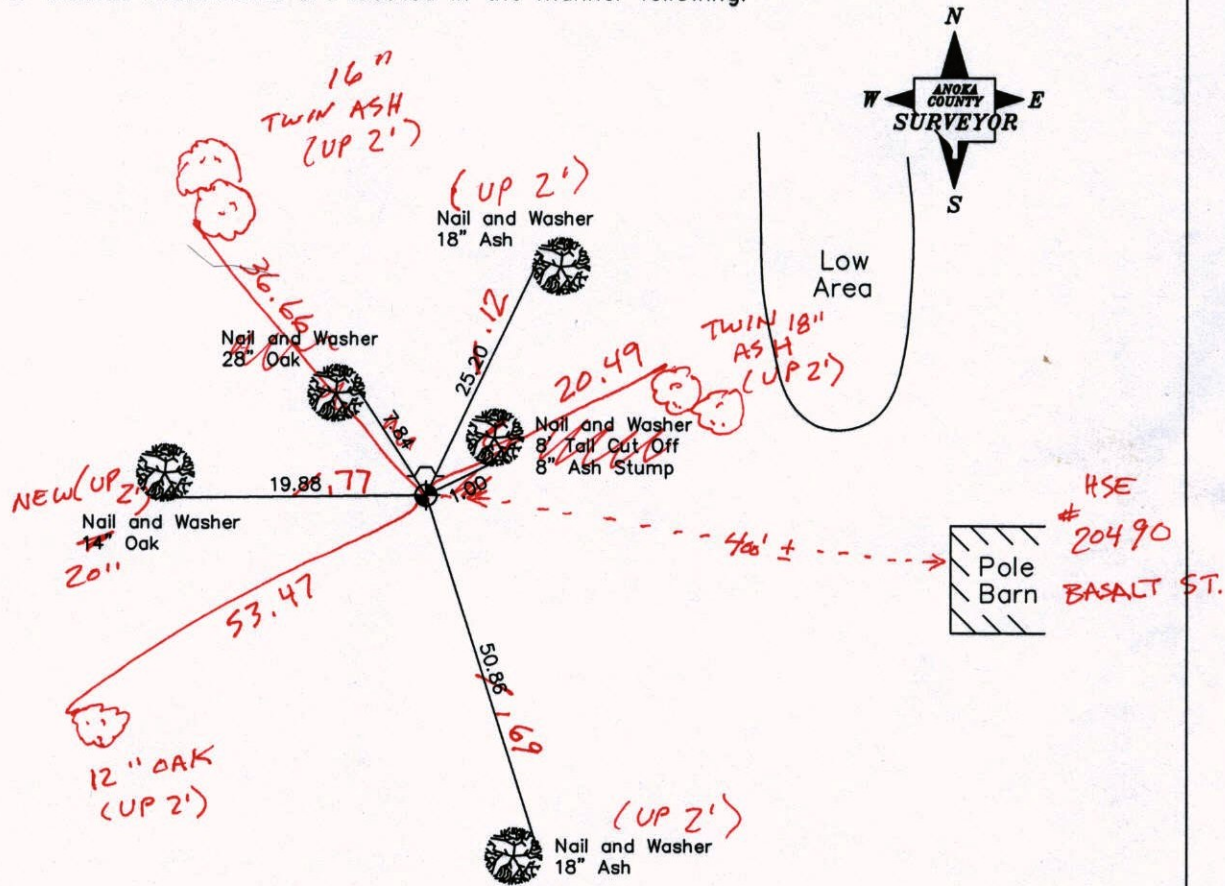 in the manner following:
N
W
ANOKA
COUNTY
E
SURVEYOR
S
16"
TWIN ASH
(UP 2')
(UP 2')
Nail and Washer
18" Ash
Low
Area
36.66
25.20
.12
TWIN 18"
ASH
(UP 2')
Nail and Washer
28" Oak
20.49
7.84
Nail and Washer
8' Tall Cut Off
8" Ash Stump
1.00
NEW (UP 2')
19.88
.77
Nail and Washer
14" Oak
20"
400' ±
HSE
# 20490
BASALT ST.
Pole
Barn
53.47
50.86
.69
12" OAK
(UP 2')
(UP 2')
Nail and Washer
18" Ash